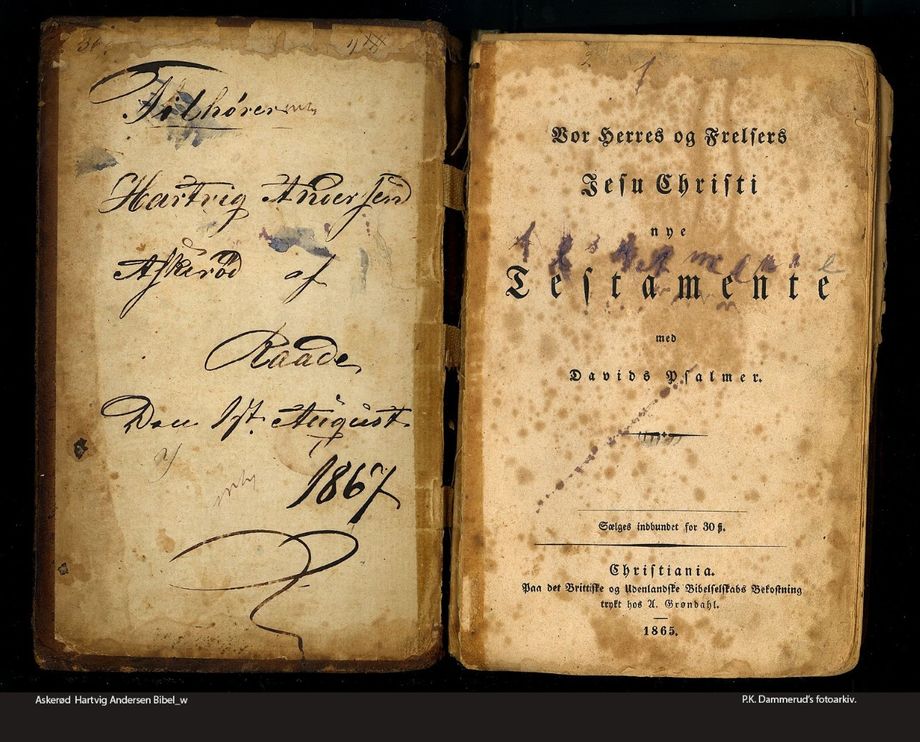 Tilhører
Hartvig Andersen
Askerød af
Raade
Den 1st. August
1867
Vor Herres og Frelsers
Jesu Christi
nye
Testamente
med
Davids Psalmer.
Sælges indbundet for 30 ß.
Christiania.
Paa det Brittiske og Udenlandske Bibelselskabs Bekostning
trykt hos A. Grøndahl.
1865.
Askerød Hartvig Andersen Bibel_w
P.K. Dammerud's fotoarkiv.